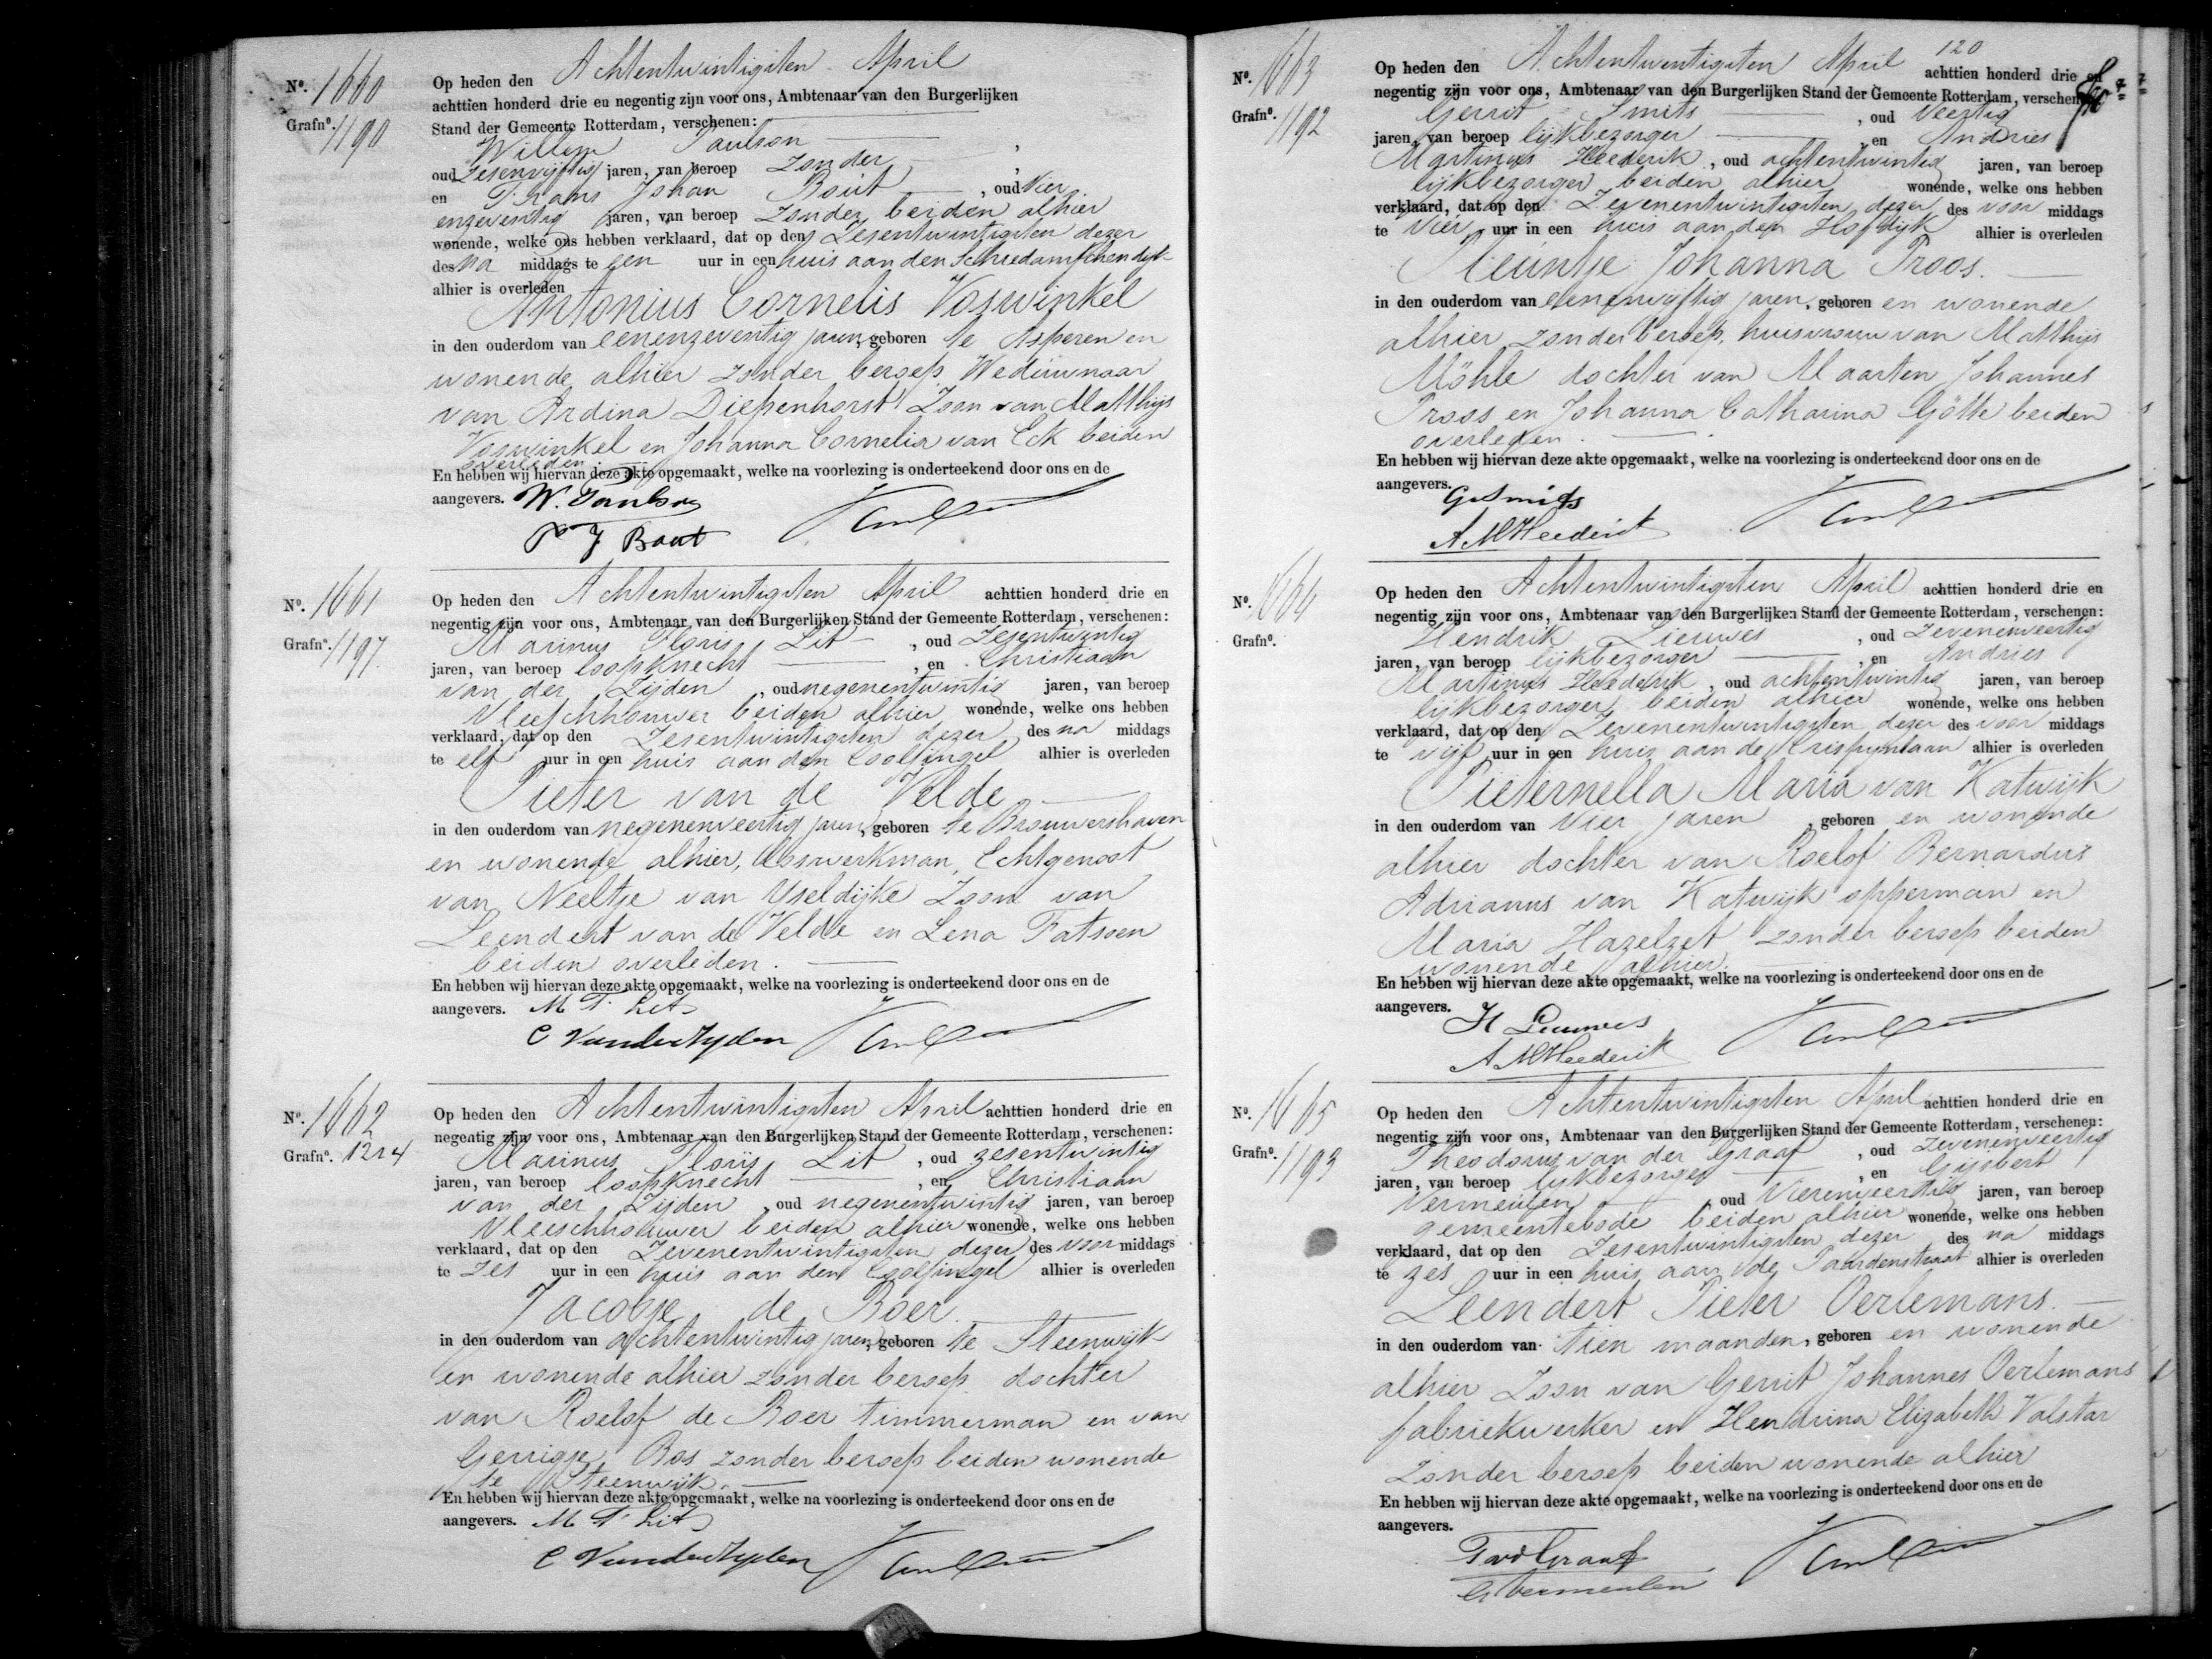 Nº. 1660
Grafnº. 1190
Op heden den Achtentwintigsten April
achttien honderd drie en negentig zijn voor ons, Ambtenaar van den Burgerlijken
Stand der Gemeente Rotterdam, verschenen:
Willem Paulson ,
oud Zesenvijftig jaren, van beroep Zonder ,
en Frans Johan Bout , oud Vier
enzeventig jaren, van beroep Zonder beiden alhier
wonende, welke ons hebben verklaard, dat op den Zesentwintigsten dezer
des na middags te een uur in een huis aan den Schiedamschendijk
alhier is overleden
Antonius Cornelis Voswinkel
in den ouderdom van eenenzeventig jaren, geboren te Asperen en
wonende alhier zonder beroep, Weduwnaar
van Ardina Diepenhorst Zoon van Matthijs
Voswinkel en Johanna Cornelia van Eck beiden
overleden.
En hebben wij hiervan deze akte opgemaakt, welke na voorlezing is onderteekend door ons en de
aangevers. W. Paulson
F J Bout
Nº. 1661
Grafnº. 1197
Op heden den Achtentwintigsten April achttien honderd drie en
negentig zijn voor ons, Ambtenaar van den Burgerlijken Stand der Gemeente Rotterdam, verschenen:
Marinus Floris Lit , oud Zesentwintig
jaren, van beroep loopknecht , en Christiaan
van der Zijden , oud negenentwintig jaren, van beroep
Vleeschhouwer beiden alhier wonende, welke ons hebben
verklaard, dat op den Zesentwintigsten dezer des na middags
te elf uur in een huis aan den Coolsingel alhier is overleden
Pieter van de Velde
in den ouderdom van negenenveertig jaren, geboren te Brouwershaven
en wonende alhier, loswerkman, Echtgenoot
van Neeltje van Yseldijke Zoon van
Leendert van de Velde en Lena Fatsoen
beiden overleden.
En hebben wij hiervan deze akte opgemaakt, welke na voorlezing is onderteekend door ons en de
aangevers. M F Lit
C Vanderzyden
Nº. 1662
Grafnº. 1214
Op heden den Achtentwintigsten April achttien honderd drie en
negentig zijn voor ons, Ambtenaar van den Burgerlijken Stand der Gemeente Rotterdam, verschenen:
Marinus Floris Lit , oud zesentwintig
jaren, van beroep loopknecht , en Christiaan
van der Zijden , oud negenentwintig jaren, van beroep
Vleeschhouwer beiden alhier wonende, welke ons hebben
verklaard, dat op den Zevenentwintigsten dezer des voor middags
te zes uur in een huis aan den Coolsingel alhier is overleden
Jacobje de Boer
in den ouderdom van achtentwintig jaren, geboren te Steenwijk
en wonende alhier zonder beroep dochter
van Roelof de Boer timmerman en van
Gerrigje Bos zonder beroep beiden wonende
te Steenwijk.
En hebben wij hiervan deze akte opgemaakt, welke na voorlezing is onderteekend door ons en de
aangevers. M F Lit
C Vanderzyden
120
Nº. 1663
Grafnº. 1192
Op heden den Achtentwintigsten April achttien honderd drie en
negentig zijn voor ons, Ambtenaar van den Burgerlijken Stand der Gemeente Rotterdam, verschenen:
Gerrit Smits , oud Veertig
jaren, van beroep lijkbezorger , en Andries
Martinus Heederik , oud achtentwintig jaren, van beroep
lijkbezorger beiden alhier wonende, welke ons hebben
verklaard, dat op den Zevenentwintigsten dezer des voor middags
te Vier uur in een huis aan den Hofdijk alhier is overleden
Pleuntje Johanna Proos.
in den ouderdom van eenenvijftig jaren, geboren en wonende
alhier zonder beroep, huisvrouw van Matthijs
Möhle dochter van Maarten Johannes
Proos en Johanna Catharina Götte beiden
overleden.
En hebben wij hiervan deze akte opgemaakt, welke na voorlezing is onderteekend door ons en de
aangevers. G Smits
A M Heederik
Nº. 1664
Grafnº.
Op heden den Achtentwintigsten April achttien honderd drie en
negentig zijn voor ons, Ambtenaar van den Burgerlijken Stand der Gemeente Rotterdam, verschenen:
Hendrik Lieuwes , oud Zevenenveertig
jaren, van beroep lijkbezorger , en Andries
Martinus Heederik , oud achtentwintig jaren, van beroep
lijkbezorger beiden alhier wonende, welke ons hebben
verklaard, dat op den Zevenentwintigsten dezer des voor middags
te vijf uur in een huis aan de Crispijnlaan alhier is overleden
Pieternella Maria van Katwijk
in den ouderdom van Vier jaren , geboren en wonende
alhier dochter van Roelof Bernardus
Adrianus van Katwijk opperman en
Maria Hazelzet zonder beroep beiden
wonende alhier.
En hebben wij hiervan deze akte opgemaakt, welke na voorlezing is onderteekend door ons en de
aangevers. H Lieuwes
A M Heederik
Nº. 1665
Grafnº. 1193
Op heden den Achtentwintigsten April achttien honderd drie en
negentig zijn voor ons, Ambtenaar van den Burgerlijken Stand der Gemeente Rotterdam, verschenen:
Theodorus van der Graaf , oud Zevenenveertig
jaren, van beroep lijkbezorger , en Gijsbert
Vermeulen , oud Vierenveertig jaren, van beroep
gemeentebode beiden alhier wonende, welke ons hebben
verklaard, dat op den Zesentwintigsten dezer des na middags
te zes uur in een huis aan de Paardenstraat alhier is overleden
Leendert Pieter Oerlemans.
in den ouderdom van tien maanden, geboren en wonende
alhier Zoon van Gerrit Johannes Oerlemans
fabriekwerker en Hendrina Elizabeth Valstar
zonder beroep beiden wonende alhier
En hebben wij hiervan deze akte opgemaakt, welke na voorlezing is onderteekend door ons en de
aangevers.
T vd Graaf
G Vermeulen